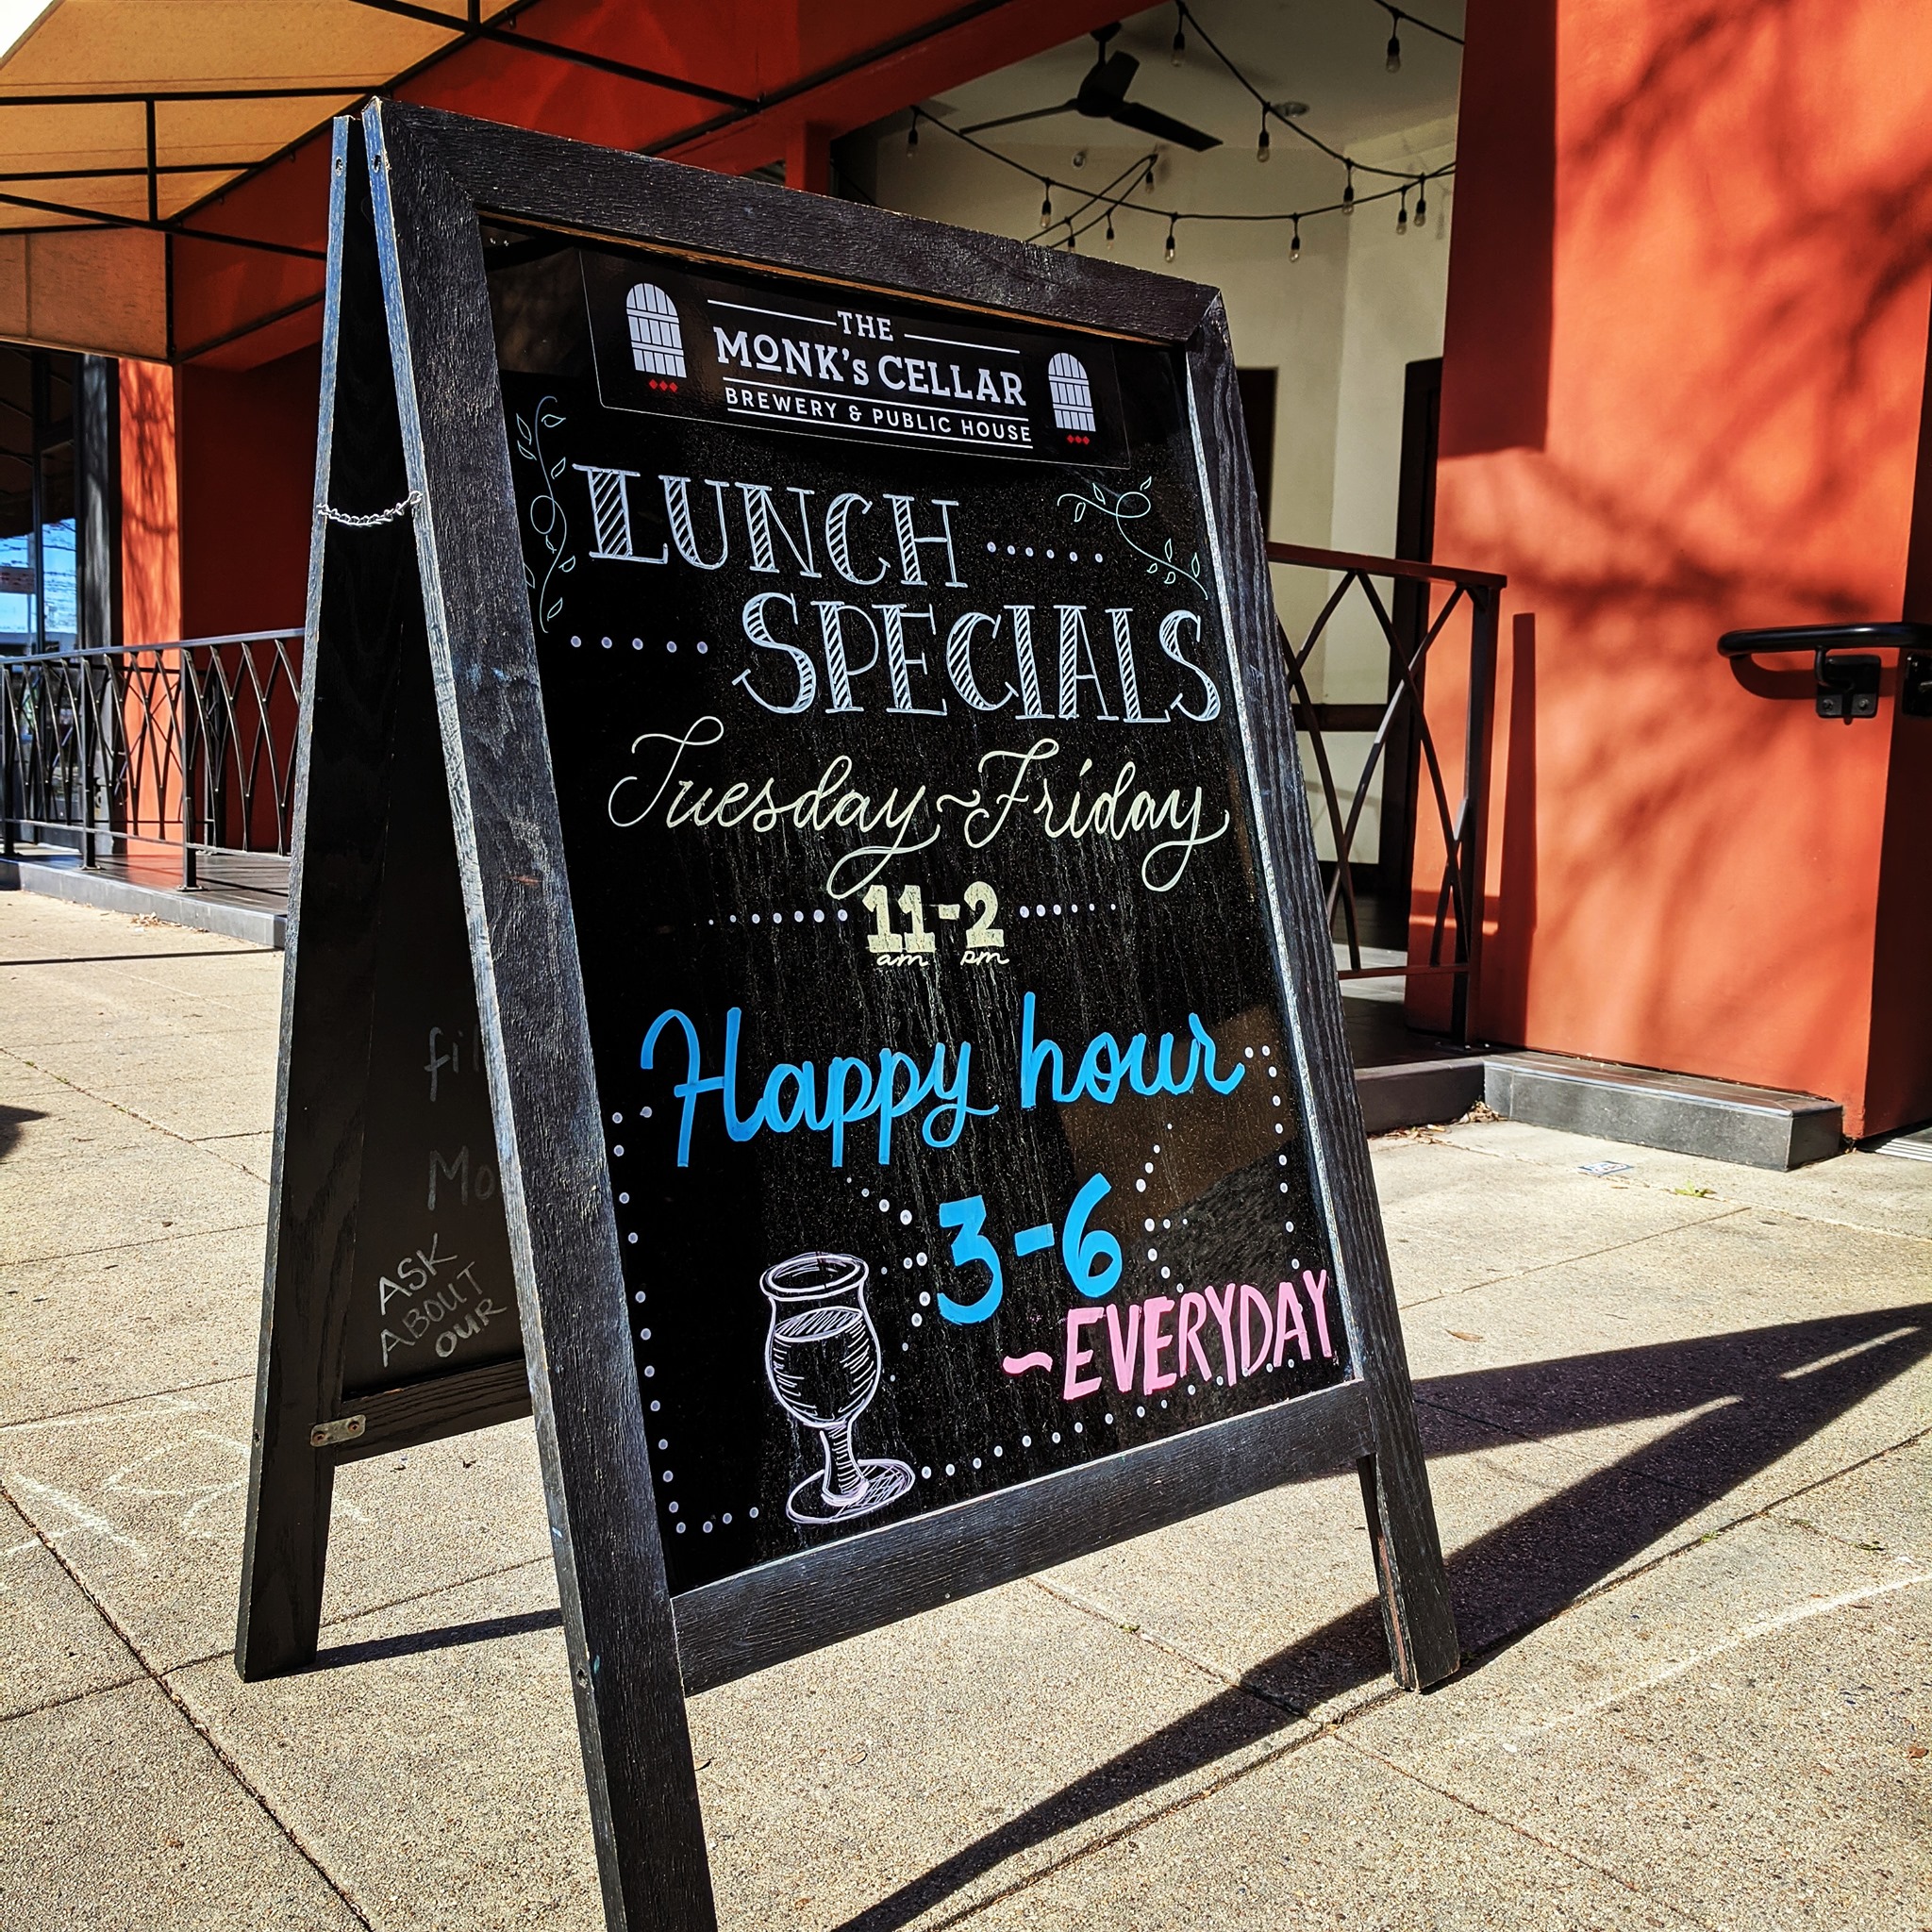 THE
MONK's CELLAR
BREWERY & PUBLIC HOUSE
LUNCH
SPECIALS
Tuesday~Friday
11-2
am pm
Happy hour
3-6
~EVERYDAY
ASK
ABOUT
OUR